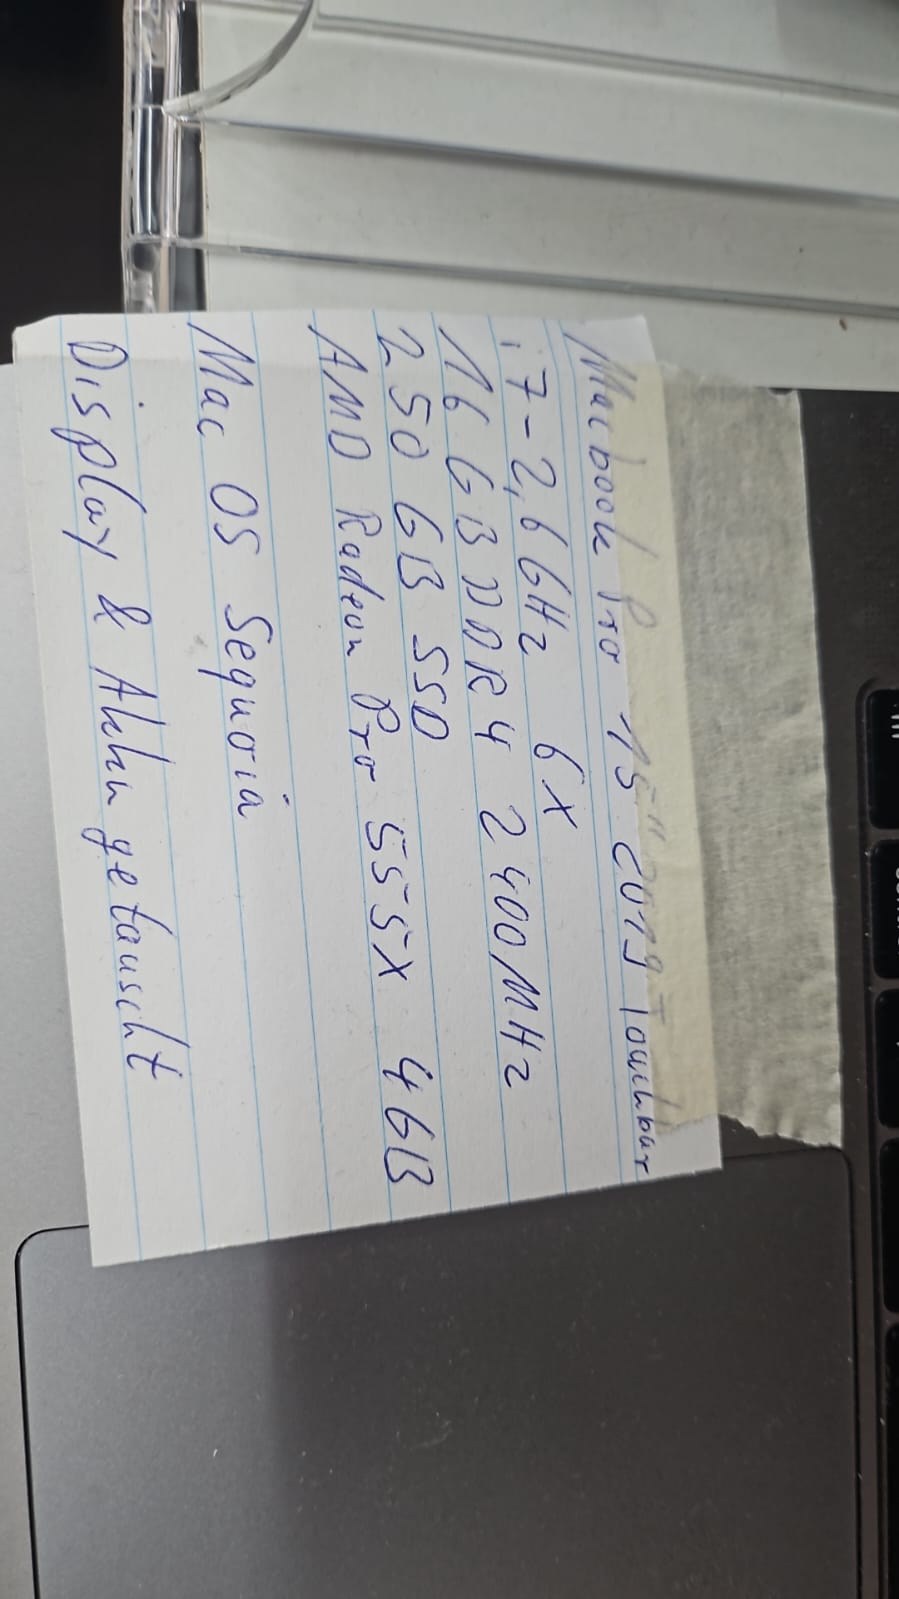 Macbook Pro 15" 2019 Touchbar
i7-2,6 GHz 6x
16 GB DDR4 2400MHz
250 GB SSD
AMD Radeon Pro 555X 4GB
Mac OS Sequoia
Display & Akku getauscht